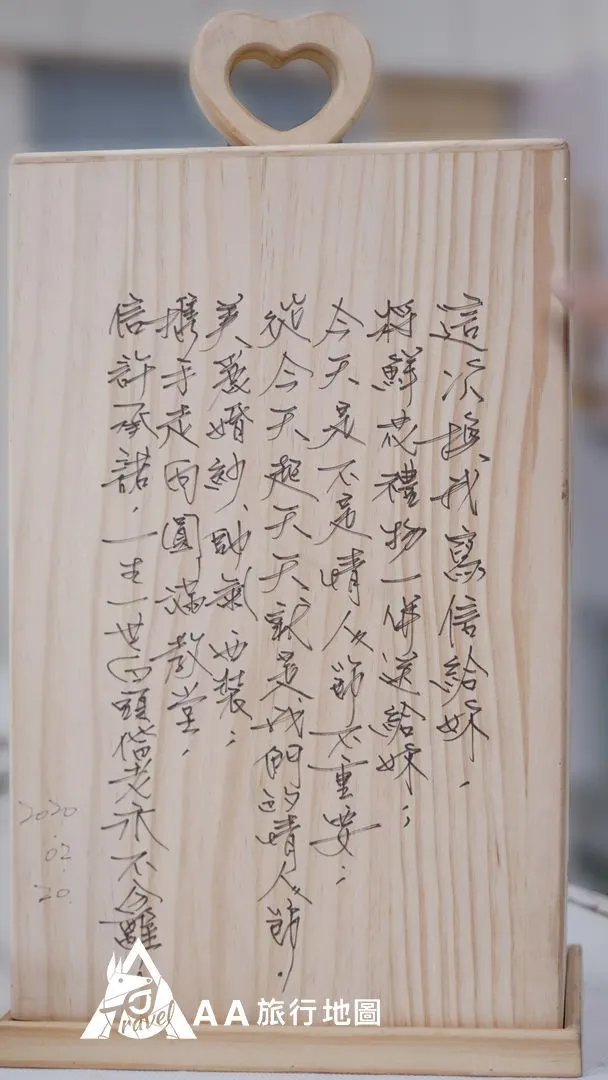 這次換我寫信給妳,
將鮮花禮物一併送給妳;
今天是不是情人節不重要;
從今天起天天就是我們的情人節.
美麗婚紗、帥氣西裝;
攜手走向圓滿教堂,
信許承諾,一生一世白頭偕老永不分離.
2020.02.20.
Travel
AA旅行地圖